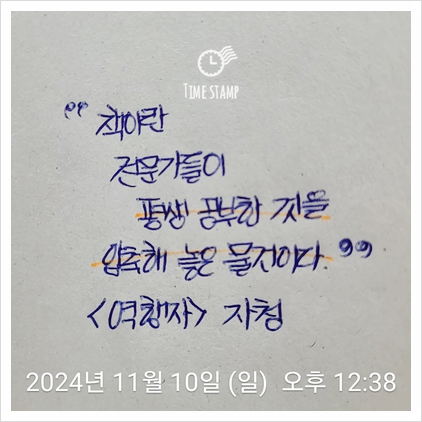 TIME STAMP
“ 책이란
전문가들이
평생 공부한 것을
압축해 놓은 물건이다. ”
<역행자> 자청
2024년 11월 10일 (일) 오후 12:38